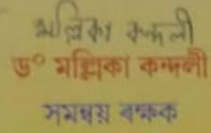 মল্লিকা কন্দলী
ড° মল্লিকা কন্দলী
সমন্বয় ৰক্ষক